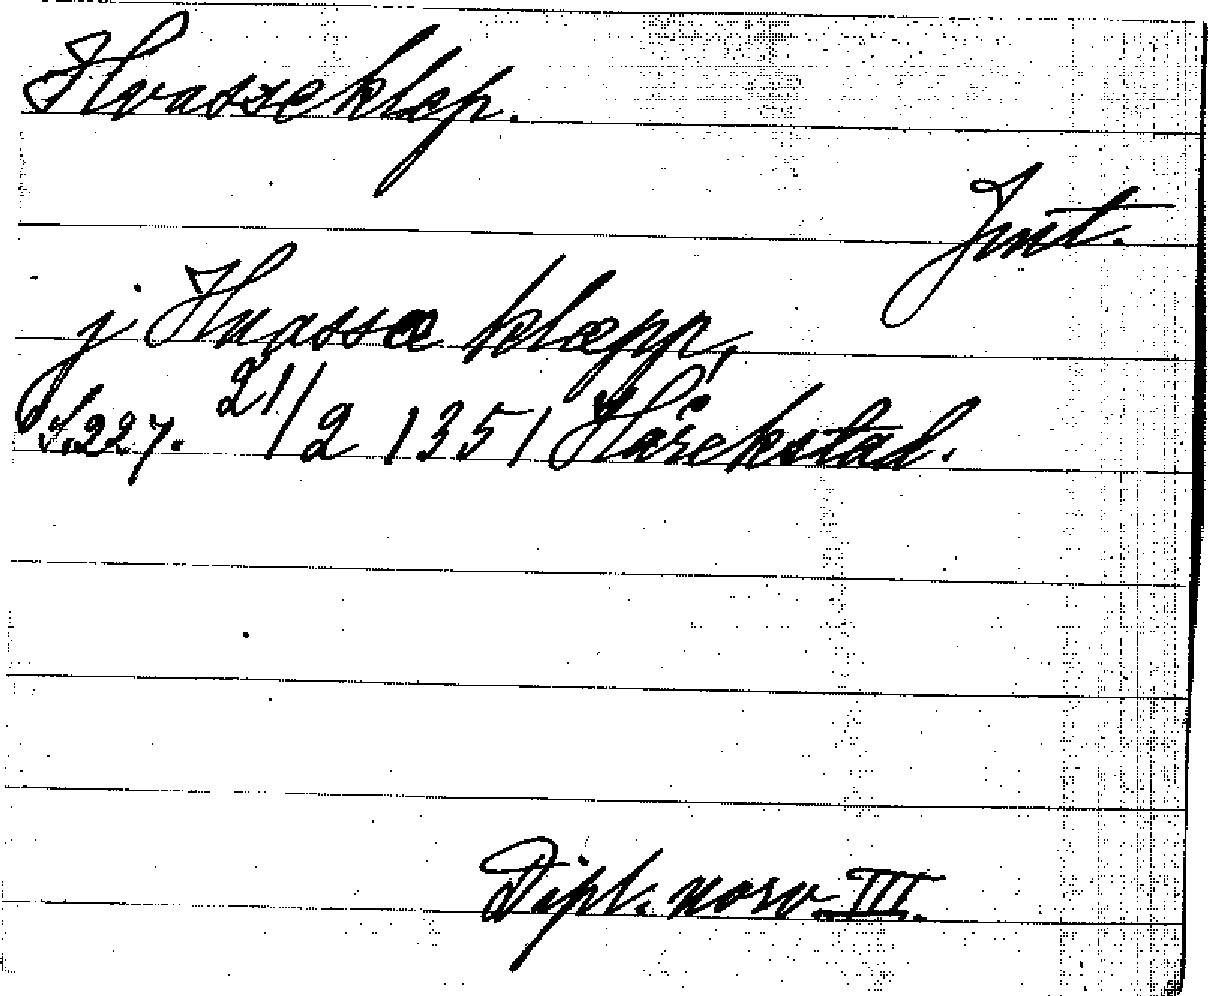 Hvasseklep.
Jmt.
j Huassæ klæpp,
S.227. 21/2 1351 Hårekstad.
Dipl. norv. III.